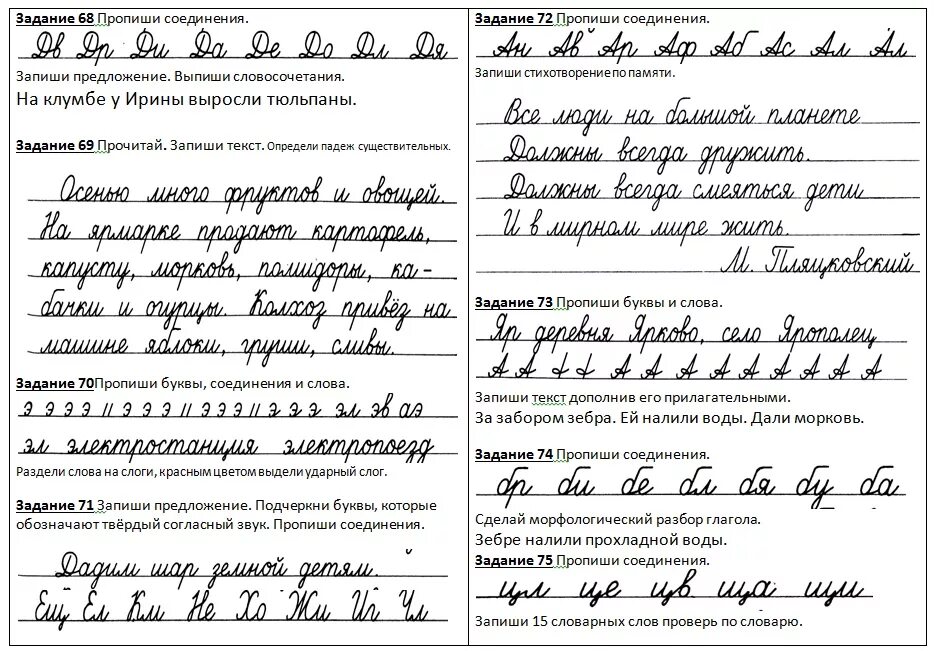 Задание 68 Пропиши соединения.
Дв Др Ди Да Де До Дл Дя
Запиши предложение. Выпиши словосочетания.
На клумбе у Ирины выросли тюльпаны.
Задание 69 Прочитай. Запиши текст. Определи падеж существительных.
Осенью много фруктов и овощей.
На ярмарке продают картофель,
капусту, морковь, помидоры, ка-
бачки и огурцы. Колхоз привёз на
машине яблоки, груши, сливы.
Задание 70Пропиши буквы, соединения и слова.
э э э э и э э э и э э э и э э э эл эв аэ
эл электростанция электропоезд
Раздели слова на слоги, красным цветом выдели ударный слог.
Задание 71 Запиши предложение. Подчеркни буквы, которые
обозначают твёрдый согласный звук. Пропиши соединения.
Дадим шар земной детям.
Ещ Ел Км Не Хо Жи Иг Чл
Задание 72 Пропиши соединения.
Ан Ав Ар Аф Аб Ас Ал Ал
Запиши стихотворение по памяти.
Все люди на большой планете
Должны всегда дружить.
Должны всегда смеяться дети
И в мирном мире жить.
М. Пляцковский
Задание 73 Пропиши буквы и слова.
Яр деревня Ярково, село Ярополец
А А А А А А А А А А А А А
Запиши текст дополнив его прилагательными.
За забором зебра. Ей налили воды. Дали морковь.
Задание 74 Пропиши соединения.
бр би бе бл бя бу ба
Сделай морфологический разбор глагола.
Зебре налили прохладной воды.
Задание 75 Пропиши соединения.
щл ще цв ща щи
Запиши 15 словарных слов проверь по словарю.